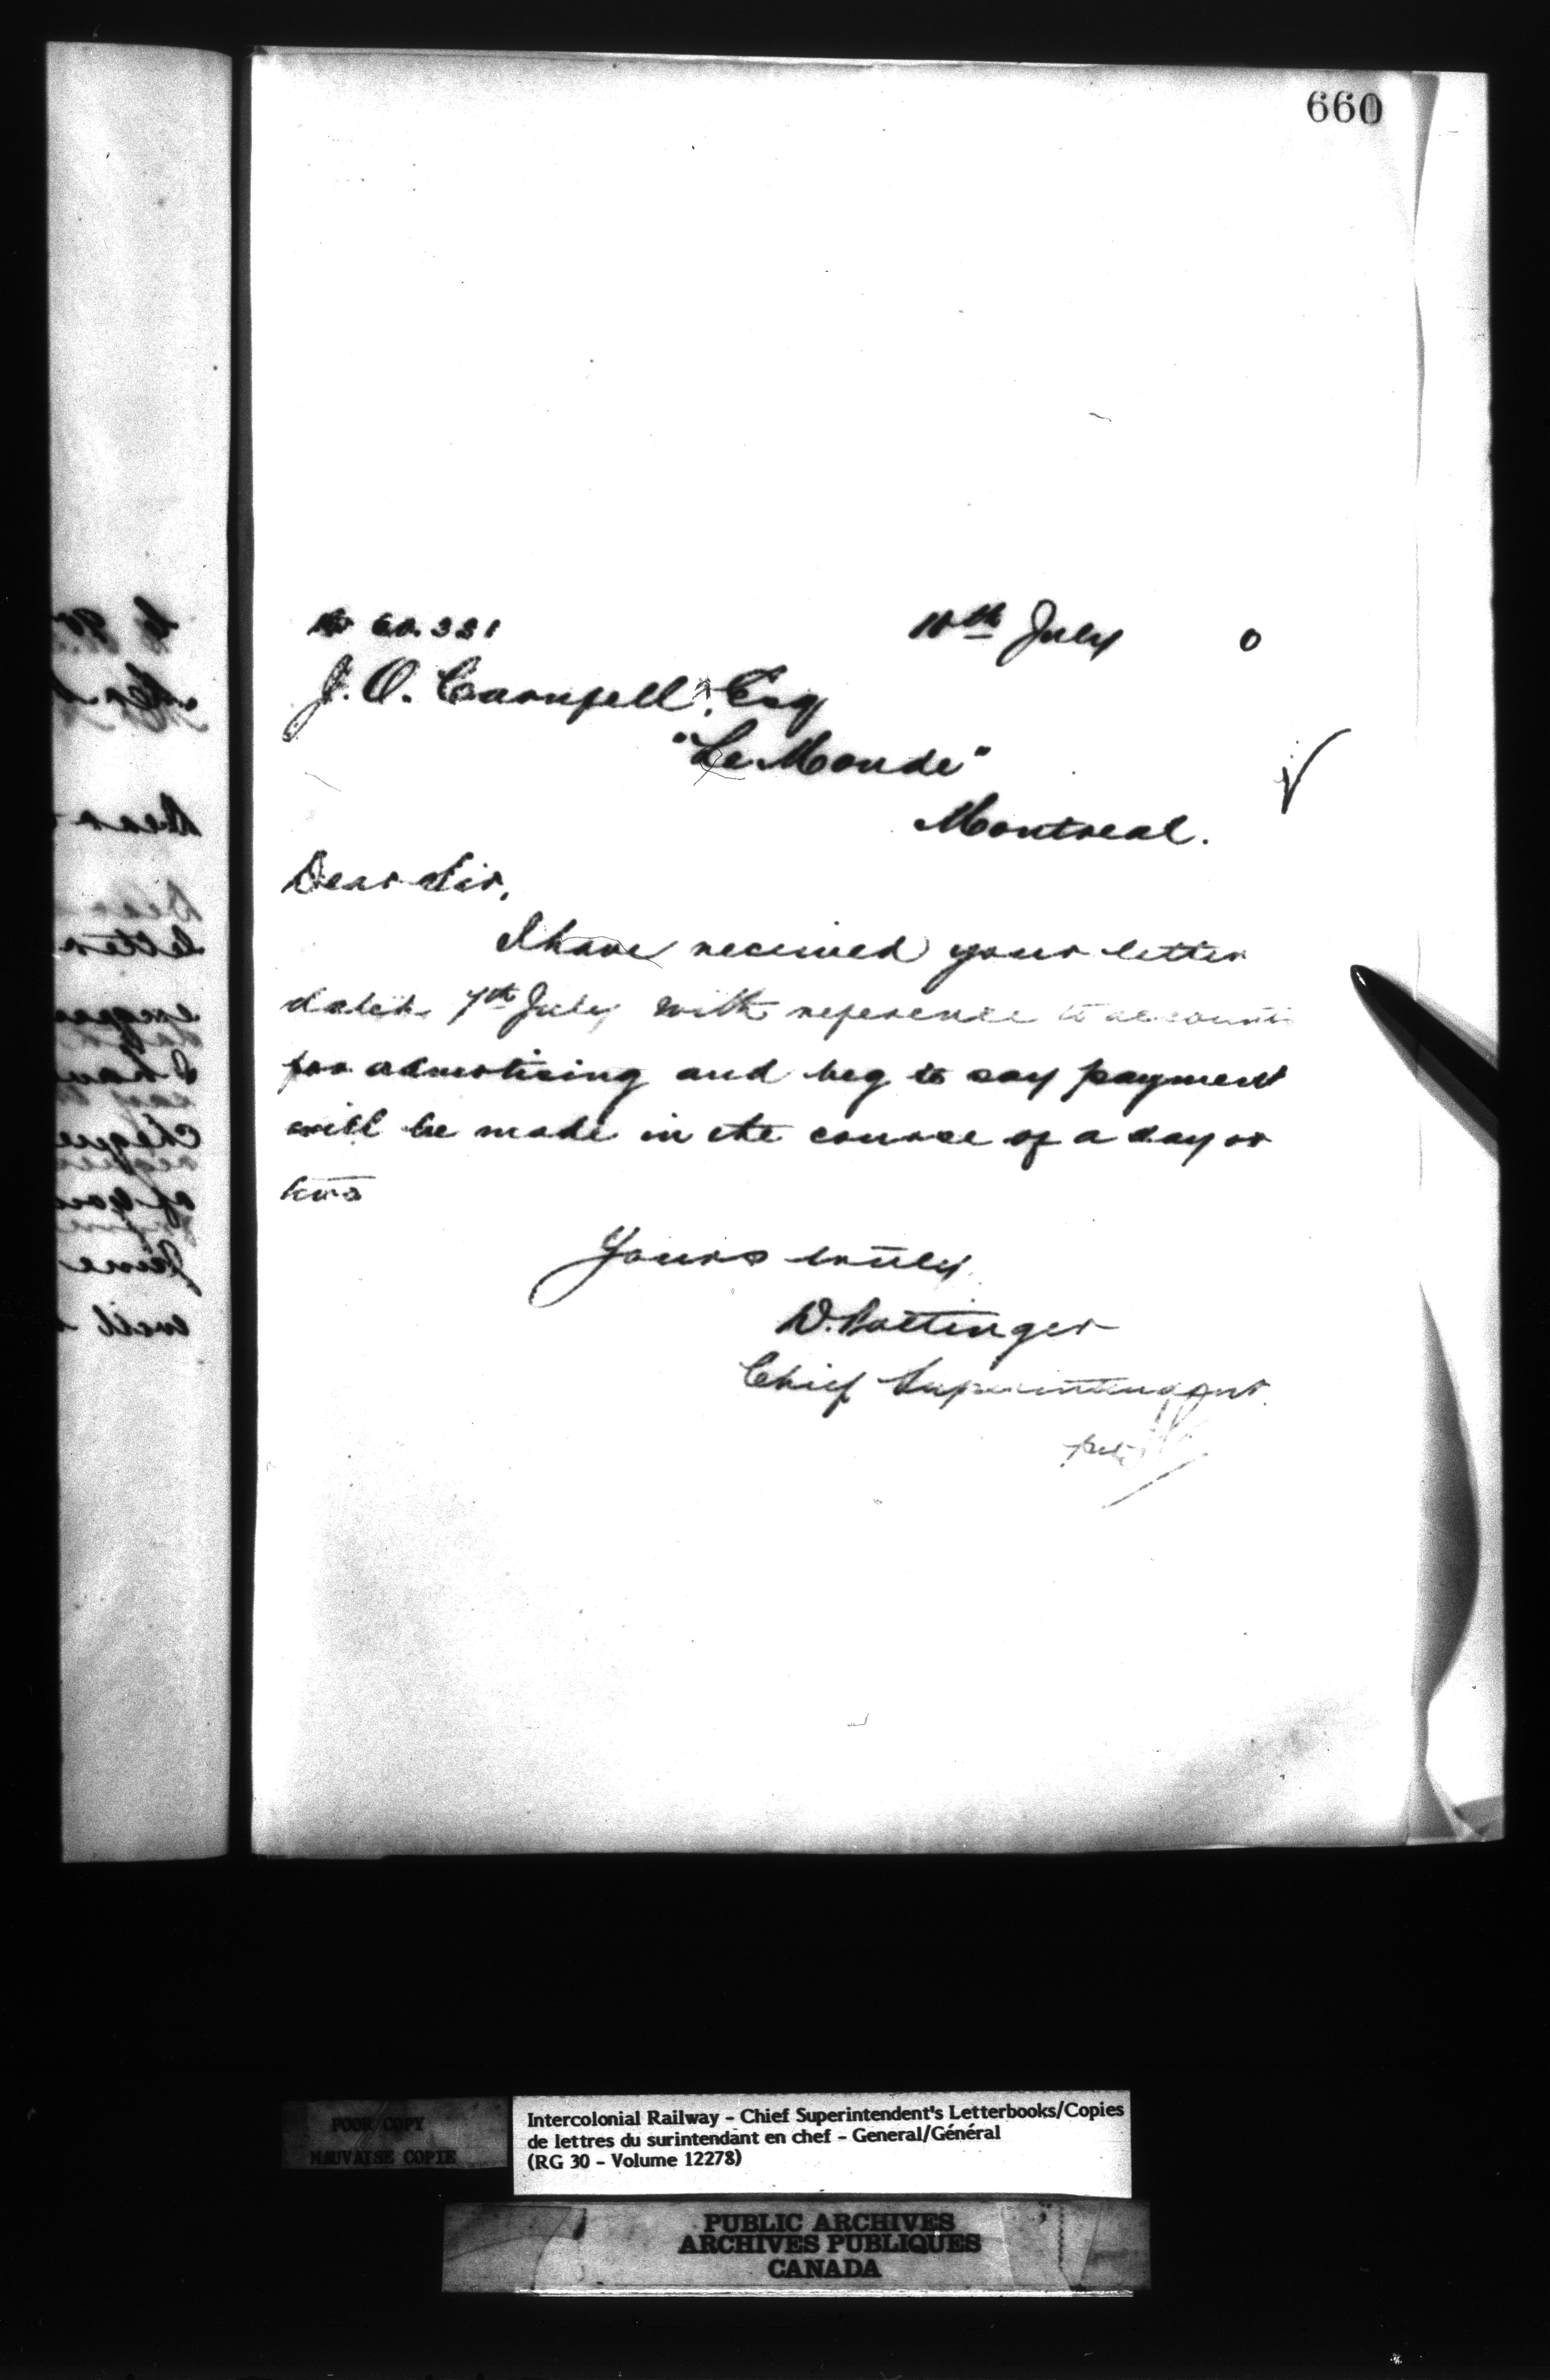 660
60.331
10th July 0
J. O. Campell, Esq
"Le Monde"
Montreal.
Dear Sir,
I have received your letter
dated 7th July with reference to accounts
for advertising and beg to say payment
will be made in the course of a day or
two
Yours truly
D. Pottinger
Chief Superintendent.
POOR COPY
MAUVAISE COPIE
Intercolonial Railway - Chief Superintendent's Letterbooks/Copies
de lettres du surintendant en chef - General/Général
(RG 30 - Volume 12278)
PUBLIC ARCHIVES
ARCHIVES PUBLIQUES
CANADA